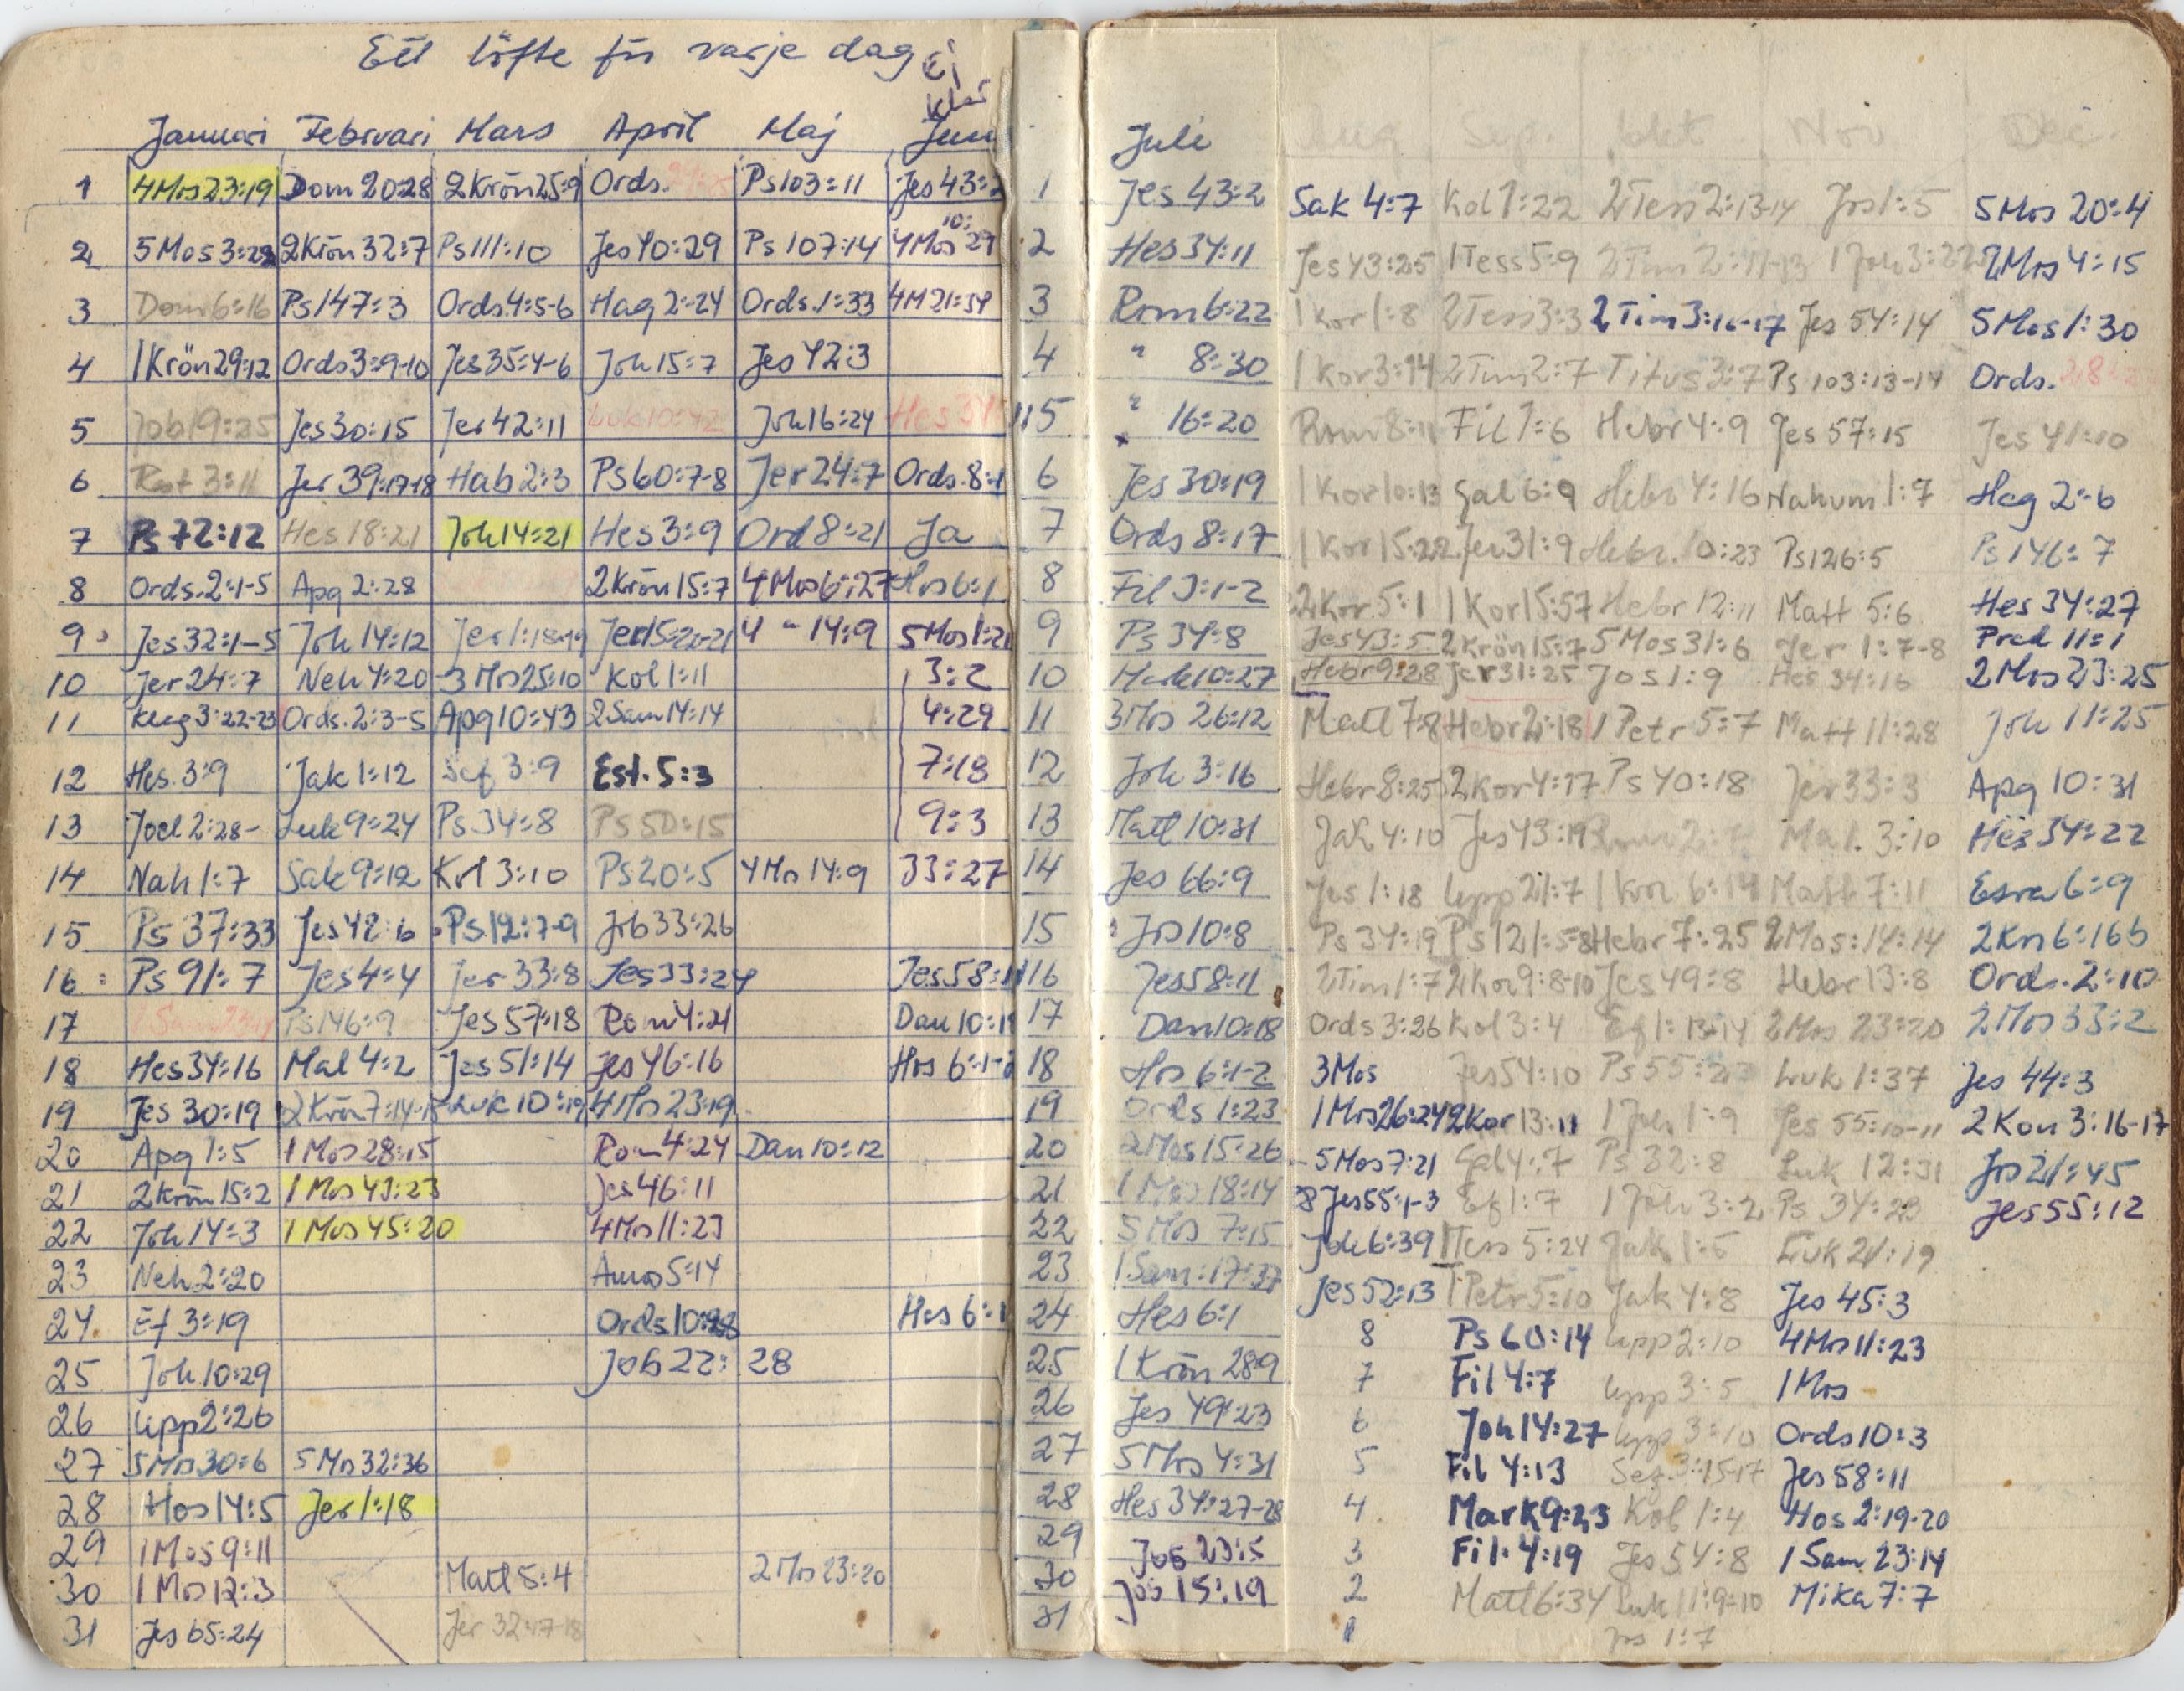 Ett löfte för varje dag Ej
klar
Januari Februari Mars April Maj Jun Juli Aug Sep. Okt Nov Dec.
1 4Mos23:19 Dom 20:28 2Krön25:9 Ords. Ps103:11 Jes 43:2 1 Jes 43:2 Sak 4:7 Kol 1:22 2Tess2:13-14 Jos1:5 5Mos 20:4
2 5Mos3:22 2Krön32:7 Ps111:10 Jes40:29 Ps 107:14 4Mos 10:29 2 Hes34:11 Jes43:25 1Tess5:9 2Tim 2:11-13 1Joh3:22 2Mos 4:15
3 Dom6:16 Ps147:3 Ords.4:5-6 Hag2:24 Ords.1:33 4M21:34 3 Rom6:22 1Kor1:8 2Tess3:3 2Tim3:16-17 Jes 54:14 5Mos1:30
4 1Krön29:12 Ords3:9-10 Jes35:4-6 Joh15:7 Jes42:3 4 " 8:30 1Kor3:14 2Tim2:7 Titus3:7 Ps 103:13-14 Ords.
5 Job19:25 Jes30:15 Jer42:11 Luk10:42 Joh16:24 5 " 16:20 Rom8:11 Fil1:6 Hebr4:9 Jes 57:15 Jes 41:10
6 3:11 Jer 39:17-18 Hab2:3 Ps60:7-8 Jer24:7 Ords.8:1 6 Jes 30:19 1Kor10:13 Gal 6:9 Hebr 4:16 Nahum1:7 Hag 2:6
7 Ps72:12 Hes18:21 Joh14:21 Hes3:9 Ord8:21 Ja 7 Ords 8:17 1Kor15:22 Jer31:9 Hebr.10:23 Ps126:5 Ps146:7
8 Ords.2:1-5 Apg 2:28 2Krön15:7 4Mos6:27 Hos6:1 8 Fil 3:1-2 2Kor.5:1 1Kor15:57 Hebr 12:11 Matt 5:6 Hes 34:27
9 Jes32:1-5 Joh 14:12 Jer1:18-19 Jer15:20-21 4 " 14:9 5Mos1:21 9 Ps 34:8 Jes43:5 2Krön15:7 5Mos31:6 Jer 1:7-8 Pred 11:1
10 Jer24:7 Neh 4:20 3Mos25:10 Kol1:11 3:2 10 Mark10:27 Hebr9:28 Jer31:25 Jos1:9 Hes 34:16 2Mos23:25
11 Klag3:22-23 Ords.2:3-5 Apg10:43 2Sam14:14 4:29 11 3Mos 26:12 Matt7:8 Hebr2:18 1Petr 5:7 Matt 11:28 Joh 11:25
12 Hes.3:9 Jak1:12 Sef 3:9 Est.5:3 7:18 12 Joh 3:16 Hebr8:25 2Kor4:17 Ps 40:18 Jer33:3 Apg 10:31
13 Joel 2:28- Luk9:24 Ps34:8 Ps50:15 9:3 13 Matt 10:31 Jak 4:10 Jes43:19 Mal. 3:10 Hes.34:22
14 Nah1:7 Sak9:12 Kol 3:10 Ps20:5 4Mos14:9 33:27 14 Jes 66:9 Jes 1:18 Upp21:7 1Kor6:14 Matt7:11 Esra6:9
15 Ps 37:33 Jes42:6 Ps12:7-9 Job33:26 15 Jos10:8 Ps 34:19 Ps121:5-8 Hebr7:25 2Mos:14:14 2Kr6:16b
16 Ps 91:7 Jes4:4 Jer33:8 Jes33:24 Jes.58:11 16 Jes58:11 2Tim1:7 2Kor9:8-10 Jes49:8 Hebr13:8 Ords.2:10
17 Ps146:9 Jes57:18 Rom4:21 Dan10:18 17 Dan10:18 Ords3:26 Kol3:4 Ef1:13-14 2Mos 23:20 2Mos33:2
18 Hes34:16 Mal4:2 Jes51:14 Jes46:16 Hos 6:1-2 18 Hos 6:1-2 3Mos Jes54:10 Ps55:23 Luk1:37 Jes 44:3
19 Jes 30:19 2Krön7:14-15 Luk10:19 4Mos23:19 19 Ords 1:23 1Mos26:24 2Kor13:11 1Joh1:9 Jes 55:10-11 2Kon3:16-17
20 Apg 1:5 1Mos28:15 Rom4:24 Dan10:12 20 2Mos15:26 5Mos7:21 Gal4:7 Ps32:8 Luk 12:31 Jos21:45
21 2Krön15:2 1Mos43:23 Jes46:11 21 1Mos18:14 8 Jes55:1-3 Ef1:7 1Joh3:2 Ps 34:23 Jes55:12
22 Joh14:3 1Mos45:20 4Mos11:23 22 5Mos 7:15 Joh6:39 1Tess 5:24 Jak1:5 Luk21:19
23 Neh2:20 Amos5:14 23 1Sam:17:37 Jes52:13 1Petr5:10 Jak4:8 Jes 45:3
24 Ef3:19 Ords10:28 Hos 6:1 24 Hes6:1 8 Ps60:14 Upp2:10 4Mos11:23
25 Joh.10:29 Job22: 28 25 1Krön 28:9 7 Fil4:7 Upp3:5 1Mos
26 Upp2:26 26 Jes 49:23 6 Joh14:27 Upp 3:10 Ords10:3
27 5Mos30:6 5Mos32:36 27 5Mos 4:31 5 Fil 4:13 Sef.3:15-17 Jes58:11
28 Hos14:5 Jer1:18 28 Hes34:27-28 4 Mark9:23 Kol1:4 Hos2:19-20
29 1Mos9:11 29 Job 23:5 3 Fil.4:19 Jes54:8 1Sam23:14
30 1Mos12:3 Matt5:4 2Mos23:20 30 Jos 15:19 2 Matt6:34 Luk11:9-10 Mika7:7
31 Jes 65:24 Jer 32:17-18 31 1 Jos 1:7